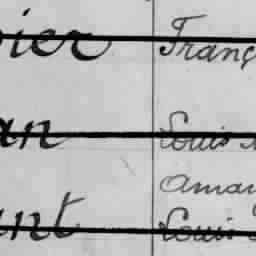 ier Franç
an Louis
Aman
ant Louis